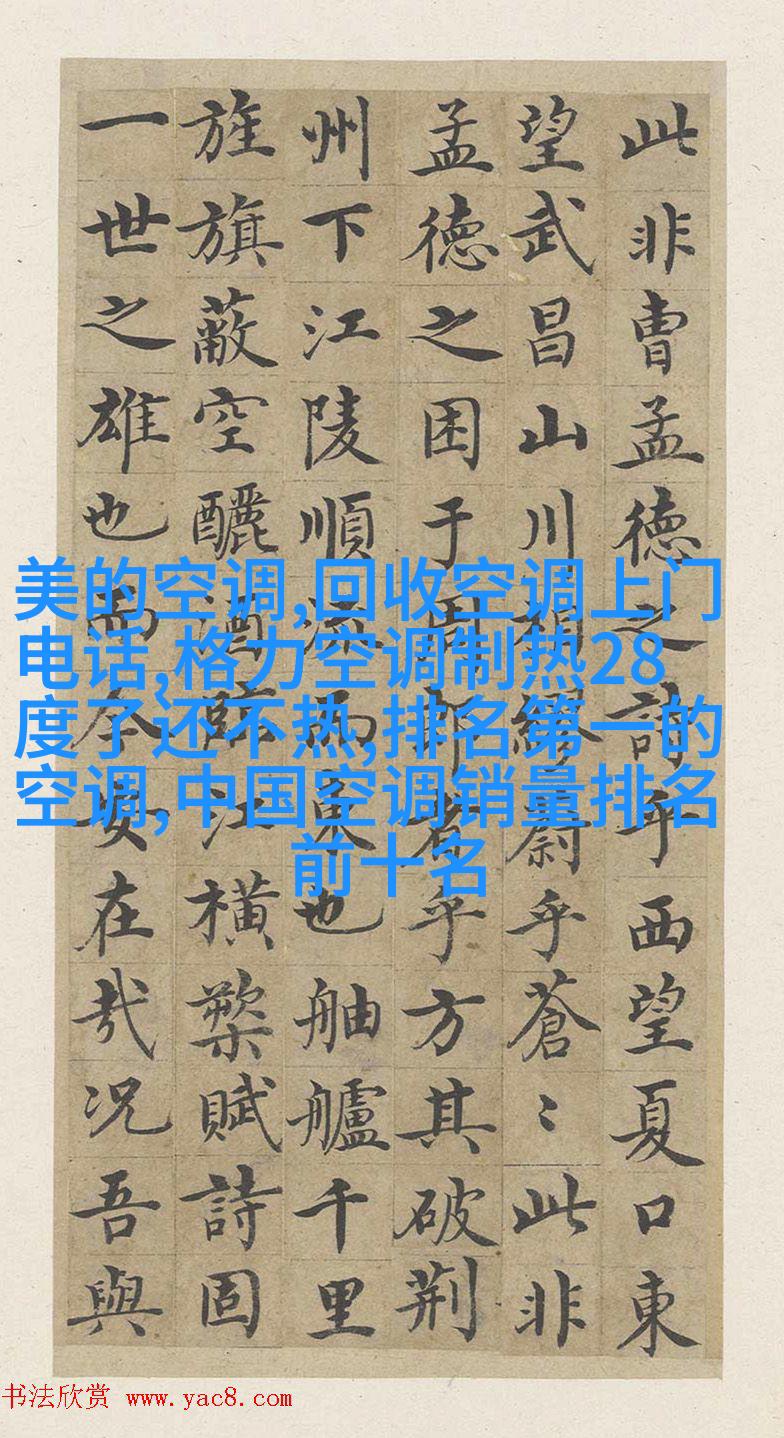 此非曹孟德之詩乎西望夏口東
望武昌山川相繆蔚乎蒼〻此非
孟德之困于周郎者乎方其破荆
州下江陵順流而東也舳艫千里
旌旗蔽空釃酒臨江橫槊賦詩固
一世之雄也而今安在哉况吾與
美的空调,回收空调上门
电话,格力空调制热28
度了还不热,排名第一的
空调,中国空调销量排名
前十名
书法欣赏 www.yac8.com